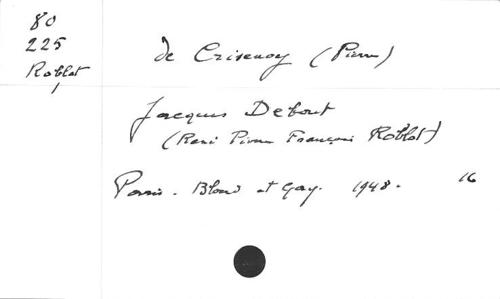 80
225
Roblot
de Crisenoy (Pierre)
Jacques Debout
(René Pierre François Roblot)
Paris - Bloud et Gay. 1948 - 16